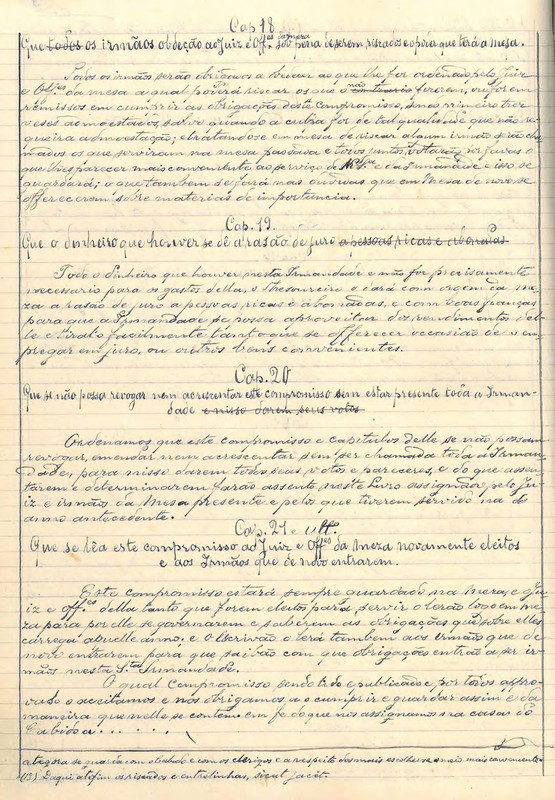 Cap. 18
Que todos os irmãos obdeção ao Juiz e Off.es da meza sob pena de serem riscados e o poder que terá a Mesa.
Todos os irmãos serão obrigados a buscar ao que lhe for ordenado pelo Juiz
e Off.es da mesa a qual poderá riscar os que o não contrario fizerem, ou forem
remissos em cumprir as obrigações deste compromisso, sendo primeiro trez
vezes admoestados, salvo quando a culpa for de tal qualidade que não re-
queira admoestação; e tratandose em mesa de riscar algum irmão serão cha-
mados os que serviram na mesa passada e todos juntos votarão por favas o
que lhes parecer mais conveniente ao serviço de N. S.ra e da Irmandade e isso se
guardará; o que tambem se fará nas duvidas que em Mesa de novo se
offerecerem sobre materias de importancia.
Cap. 19.
Que o dinheiro que houver se dê a rasão de juro a pessoas ricas e abonadas
Todo o dinheiro que houver nesta Irmandade e não for precisamente
necessario para os gastos della, o Thesoureiro o dará com ordem da me-
za a rasão de juro a pessoas ricas e abonadas, e com boas fianças
para que a Irmandade se possa aproveitar dos rendimentos del-
le e tiralo facilmente tanto que se offerecer occasião de o em-
pregar em juro, ou outros bens convenientes.
Cap. 20
Que se não possa revogar nem acrescentar este compromisso sem estar presente toda a Irman-
dade e nisso darem seus votos
Ordenamos que este compromisso e capitulos delle se não possam
revogar, emendar nem acrescentar sem ser chamada toda a Irman-
dade, para nisso darem todos seus votos e pareceres, e do que assen-
tarem e determinarem farão assento neste Livro assignado pelo Ju-
iz e irmãos da Mesa presente e pelos que tiverem servido na do
anno antecedente.
Cap. 21 e ult.
Que se lêa este compromisso ao Juiz e Off.es da Meza novamente eleitos
e aos Irmãos que de novo entrarem.
Este compromisso estará sempre guardado na Mesa, e o Ju-
iz e Off.es della tanto que forem eleitos para servir o lerão logo em me-
za para por elle se governarem e saberem as obrigações que sobre elles
carrega aquelle anno, e o Escrivão o lerá também aos Irmãos que de
novo entrarem para que saibão com que obrigações entrão a ser ir-
mãos nesta S.ta Irmandade.
O qual Compromisso sendo lido e publicado e por todos appro-
vado o aceitamos e nos obrigamos a o cumprir e guardar assim e da
maneira que nelle se contem em fé do que nos assignamos na casa do
Cabido a . . . . . ,
atégora se guarda com o Cabido e com os clerigos e a respeito das mais escolherse o meio mais conveniente
(13) Daqui até o fim os riscados e entrelinhas, sicut jacet.